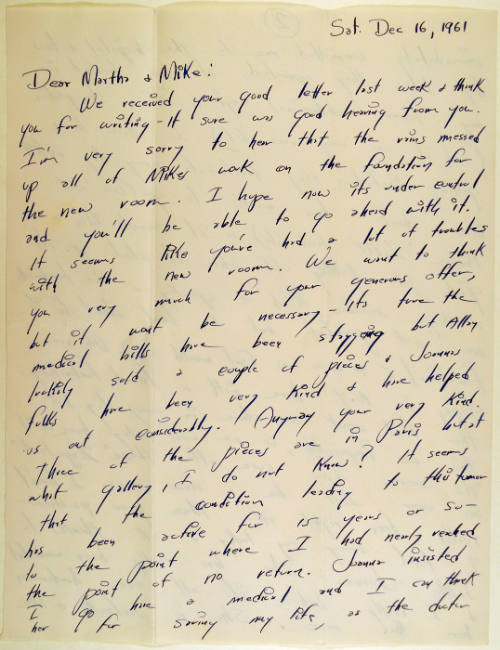 Sat. Dec 16, 1961
Dear Martha & Mike:
We received your good letter last week & thank
you for writing - it sure was good hearing from you.
I'm very sorry to hear that the rains messed
up all of Mikes work on the foundation for
the new room. I hope now its under control
and you'll be able to go ahead with it.
It seems like you've had a lot of troubles
with the new room. We want to thank
you very much for your generous offer,
but it wont be necessary - its true the
medical bills have been staggering but Allan
luckily sold a couple of pieces & Joannes
folks have been very kind & have helped
us out considerably. Anyway your very kind.
Three of the pieces are in Paris but at
what gallery, I do not know? It seems
that the condition leading to this tumor
has been active for 15 years or so -
to the point where I had nearly reached
the point of no return. Joanne insisted
I go have a medical and I can thank
her for saving my life, as the doctor